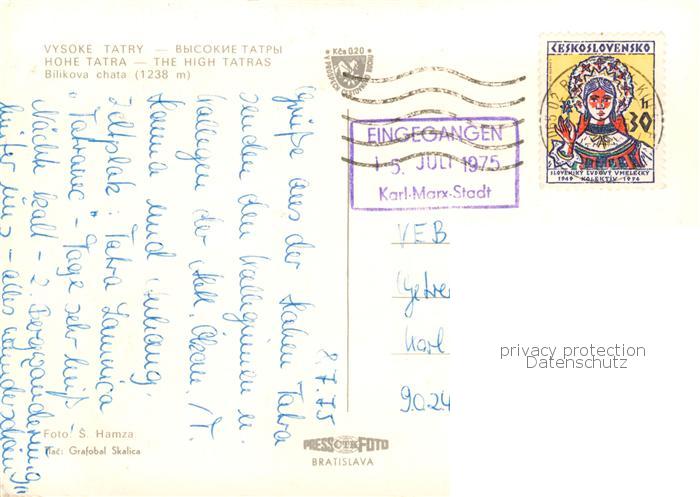 VYSOKÉ TATRY — ВЫСОКИЕ ТАТРЫ
HOHE TATRA — THE HIGH TATRAS
Bílikova chata (1238 m)
Kčs 0.20
ČESKOSLOVENSKO
30 h
SLOVENSKÝ ĽUDOVÝ UMELECKÝ
1949 KOLEKTÍV 1974
EINGEGANGEN
15. JULI 1975
Karl-Marx-Stadt
8.7.75
Grüße aus der Hohen Tatra
senden den Kolleginnen u.
Kollegen der Abt. Ökon. /T.
Hanna und
Zeltplatz: Tatra Lomnica
Tatranec - Tage sehr heiß
Nächte kalt - 2. Bergwanderung
hinter uns - alles wunderschön
VEB
Getrie
Karl
9024
privacy protection
Datenschutz
Foto: Š. Hamza
Tlač: Grafobal Skalica
PRESSFOTO
BRATISLAVA